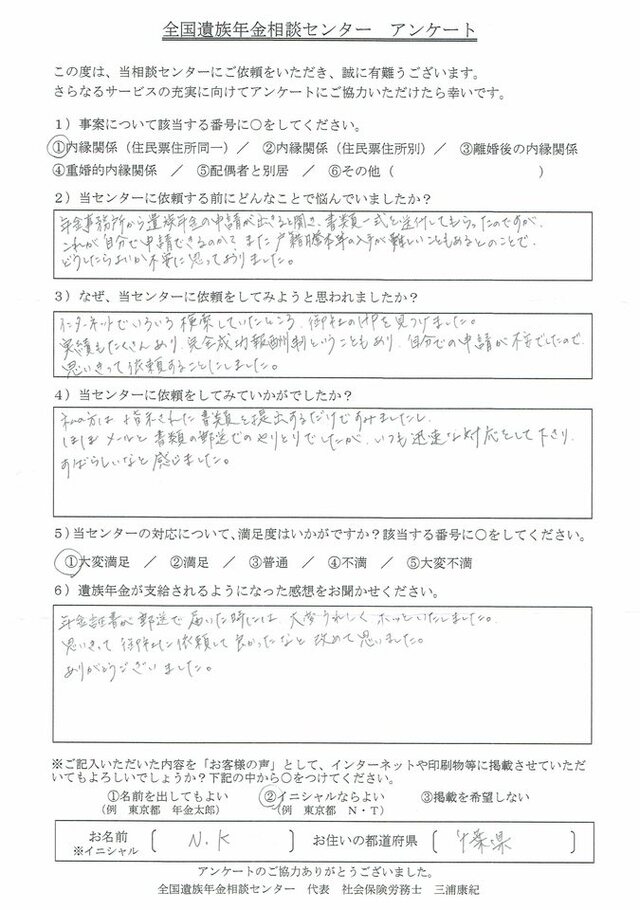 全国遺族年金相談センター　アンケート
この度は、当相談センターにご依頼をいただき、誠に有難うございます。
さらなるサービスの充実に向けてアンケートにご協力いただけたら幸いです。
1）事案について該当する番号に○をしてください。
①内縁関係（住民票住所同一）　／　②内縁関係（住民票住所別）／　③離婚後の内縁関係
④重婚的内縁関係　／　⑤配偶者と別居　／　⑥その他（　　　　　　　　　　）
2）当センターに依頼する前にどんなことで悩んでいましたか？
年金事務所から遺族年金の申請が出来ると聞き、書類一式を送付してもらったのですが、
これが自分で申請できるのか？また戸籍謄本等の入手が難しいこともあるとのことで、
どうしたらよいか不安に思っておりました。
3）なぜ、当センターに依頼をしてみようと思われましたか？
インターネットでいろいろ検索していたところ、御社のHPを見つけました。
実績もたくさんあり、完全成功報酬制ということもあり、自分での申請が不安でしたので、
思いきって依頼することにしました。
4）当センターに依頼をしてみていかがでしたか？
私の方は指示された書類を提出するだけですみましたし、
ほぼメールと書類の郵送でのやりとりでしたが、いつも迅速な対応をして下さり、
すばらしいなと感じました。
5）当センターの対応について、満足度はいかがですか？該当する番号に○をしてください。
①大変満足　／　②満足　／　③普通　／　④不満　／　⑤大変不満
6）遺族年金が支給されるようになった感想をお聞かせください。
年金証書が郵送で届いた時には、大変うれしくホッといたしました。
思いきって御社に依頼して良かったなと改めて思いました。
ありがとうございました。
※ご記入いただいた内容を「お客様の声」として、インターネットや印刷物等に掲載させていただ
いてもよろしいでしょうか？下記の中から○をつけてください。
①名前を出してもよい　　②イニシャルならよい　　③掲載を希望しない
（例　東京都　年金太郎）　　（例　東京都　N・T）
お名前　〔　N.K　〕　お住いの都道府県　〔　千葉県　〕
※イニシャル
アンケートのご協力ありがとうございました。
全国遺族年金相談センター　代表　社会保険労務士　三浦康紀